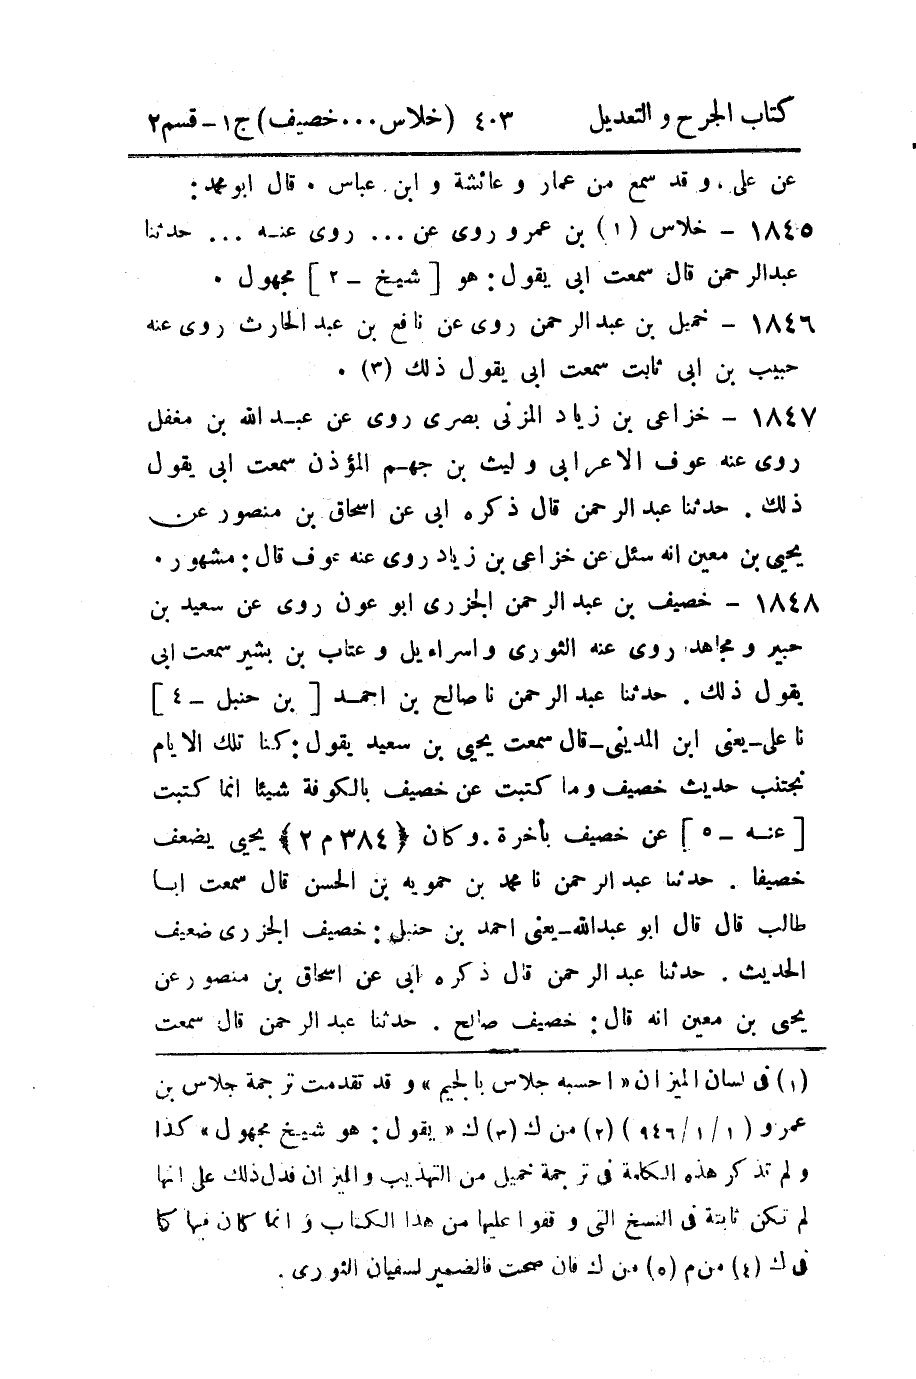 كتاب الجرح و التعديل ٤٠٣ (خلاس ٠٠٠ خصيف) ج١ - قسم٢
عن على، و قد سمع من عمار و عائشة و ابن عباس ٠ قال ابو محمد:
١٨٤٥ - خلاس (١) بن عمرو روى عن ... روى عنه ... حدثنا
عبدالرحمن قال سمعت ابى يقول: هو [ شيخ - ٢ ] مجهول ٠
١٨٤٦ - خميل بن عبد الرحمن روى عن نافع بن عبد الحارث روى عنه
حبيب بن ابى ثابت سمعت ابى يقول ذلك (٣) ٠
١٨٤٧ - خزاعى بن زياد المزنى بصرى روى عن عبد الله بن مغفل
روى عنه عوف الاعرابى و ليث بن جهم المؤذن سمعت ابى يقول
ذلك . حدثنا عبد الرحمن قال ذكره ابى عن اسحاق بن منصور عن
يحيى بن معين انه سئل عن خزاعى بن زياد روى عنه عوف قال: مشهور ٠
١٨٤٨ - خصيف بن عبد الرحمن الجزرى ابو عون روى عن سعيد بن
جبير و مجاهد روى عنه الثورى و اسراءيل و عتاب بن بشير سمعت ابى
يقول ذلك . حدثنا عبد الرحمن نا صالح بن احمد [ بن حنبل - ٤ ]
نا على-يعنى ابن المدينى-قال سمعت يحيى بن سعيد يقول: كنا تلك الايام
نجتنب حديث خصيف و ما كتبت عن خصيف بالكوفة شيئا انما كتبت
[ عنه - ٥ ] عن خصيف بأخرة . و كان ﴿ ٣٨٤ م ٢ ﴾ يحيى يضعف
خصيفا . حدثنا عبد الرحمن نا محمد بن حمويه بن الحسن قال سمعت ابا
طالب قال قال ابو عبدالله-يعنى احمد بن حنبل: خصيف الجزرى ضعيف
الحديث . حدثنا عبد الرحمن قال ذكره ابى عن اسحاق بن منصور عن
يحيى بن معين انه قال: خصيف صالح . حدثنا عبد الرحمن قال سمعت
(١) فى لسان الميزان « احسبه جلاس بالجيم » و قد تقدمت ترجمة جلاس بن
عمرو (١/١/ ٩٤٦) (٢) من ك (٣) ك « يقول: هو شيخ مجهول » كذا
و لم تذكر هذه الكلمة فى ترجمة خميل من التهذيب و الميزان فدل ذلك على انها
لم تكن ثابتة فى النسخ التى و قفوا عليها من هذا الكتاب و انما كان فيها كما
فى ك (٤) من م (٥) من ك فان صحت فالضمير لسفيان الثورى .